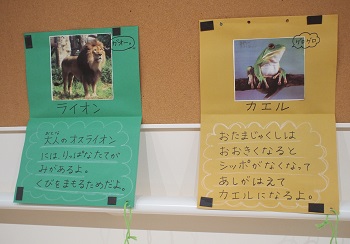 ガオー。
ライオン
おとな
大人のオスライオン
には、りっぱなたてが
みがあるよ。
くびをまもるためだよ。
ケロケロ
カエル
おたまじゃくしは
おおきくなると
シッポがなくなって
あしがはえて
カエルになるよ。